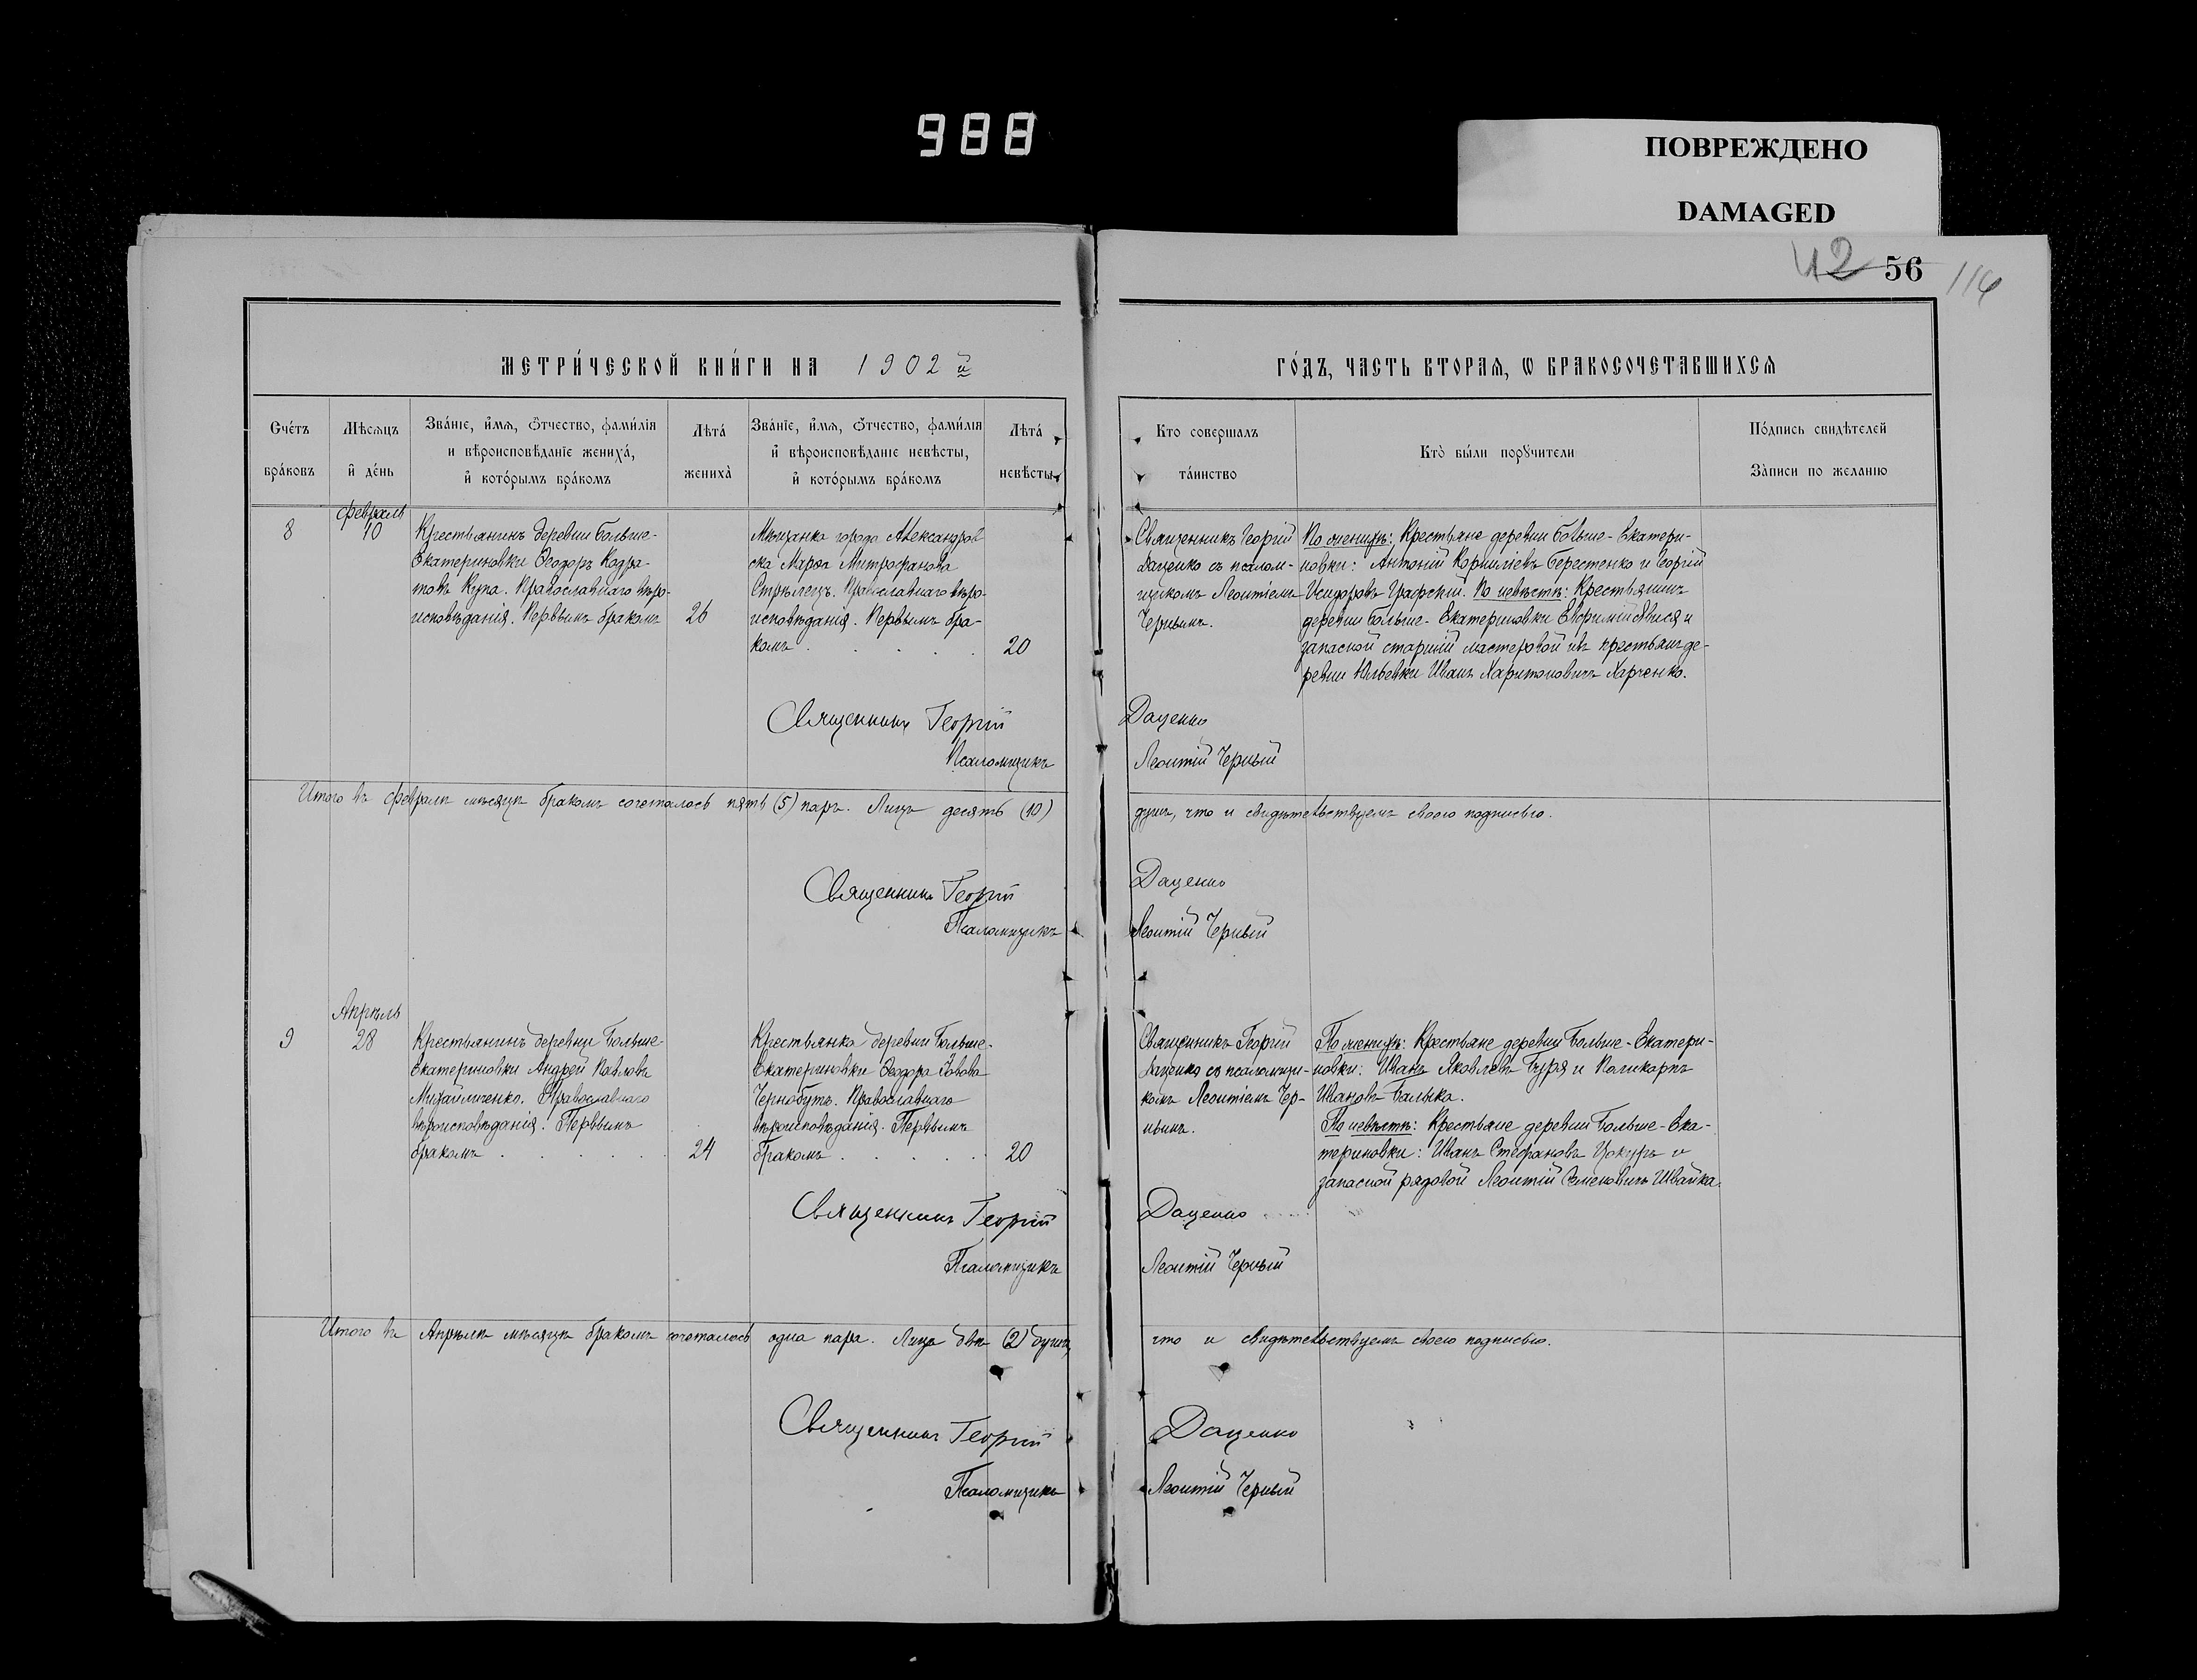 988
ПОВРЕЖДЕНО
DAMAGED
42 56 114
МЕТРИ́ЧЕСКОЙ КНИ́ГИ НА 1902 й
ГО́ДЪ, ЧАСТЬ ВТОРАЯ, Ѡ БРАКОСОЧЕТАВШИХСЯ
Счетъ браковъ
Мѣсяцъ и день
Званіе, имя, отчество, фамилія
и вѣроисповѣданіе жениха,
и которымъ бракомъ
Лѣта жениха
Званіе, имя, отчество, фамилія
и вѣроисповѣданіе невѣсты,
и которымъ бракомъ
Лѣта невѣсты
Кто совершалъ
таинство
Кто были поручители
Подпись свидѣтелей
записи по желанію
8
Февраль
10
Крестьянинъ деревни Больше-
Екатериновки Ѳеодоръ Кодра-
товъ Купа. Православнаго вѣро-
исповѣданія. Первымъ бракомъ
26
Мѣщанка города Александров
ска Марѳа Митрофанова
Стрѣлецъ. Православнаго вѣро-
исповѣданія. Первымъ бра-
комъ
20
Священникъ Георгій
Даценко съ псалом-
щикомъ Леонтіемъ
Чернымъ.
По женихѣ: Крестьяне деревни Больше-Екатери-
новки: Антоній Корниліевъ Берестенко и Георгій
Исидоровъ Графскій. По невѣстѣ: Крестьянинъ
деревни Больше-Екатериновки Евфимій и
запасной старшій мастеровой изъ крестьянъ де-
ревни Юльевки Иванъ Харитоновичъ Харченко.
Священникъ Георгій Даценко
Псаломщикъ Леонтій Черный
Итого въ Февралѣ мѣсяцѣ бракомъ сочеталось пять (5) паръ. Лицъ десять (10) душъ, что и свидѣтельствуемъ своею подписью.
Священникъ Георгій Даценко
Псаломщикъ Леонтій Черный
9
Апрѣль
28
Крестьянинъ деревни Больше-
Екатериновки Андрей Павловъ
Михайличенко. Православнаго
вѣроисповѣданія. Первымъ
бракомъ
24
Крестьянка деревни Больше-
Екатериновки Ѳеодора Іовова
Чернобуть. Православнаго
вѣроисповѣданія. Первымъ
бракомъ
20
Священникъ Георгій
Даценко съ псаломщи-
комъ Леонтіемъ Чер-
нымъ.
По женихѣ: Крестьяне деревни Больше-Екатери-
новки: Иванъ Яковлевъ Буря и Поликарпъ
Ивановъ Балыка.
По невѣстѣ: Крестьяне деревни Больше-Ека-
териновки: Иванъ Стефановъ Цокуръ и
запасной рядовой Леонтій Семеновичъ Швайка.
Священникъ Георгій Даценко
Псаломщикъ Леонтій Черный
Итого въ Апрѣлѣ мѣсяцѣ бракомъ сочеталось одна пара. Лица двѣ (2) души, что и свидѣтельствуемъ своею подписью.
Священникъ Георгій Даценко
Псаломщикъ Леонтій Черный